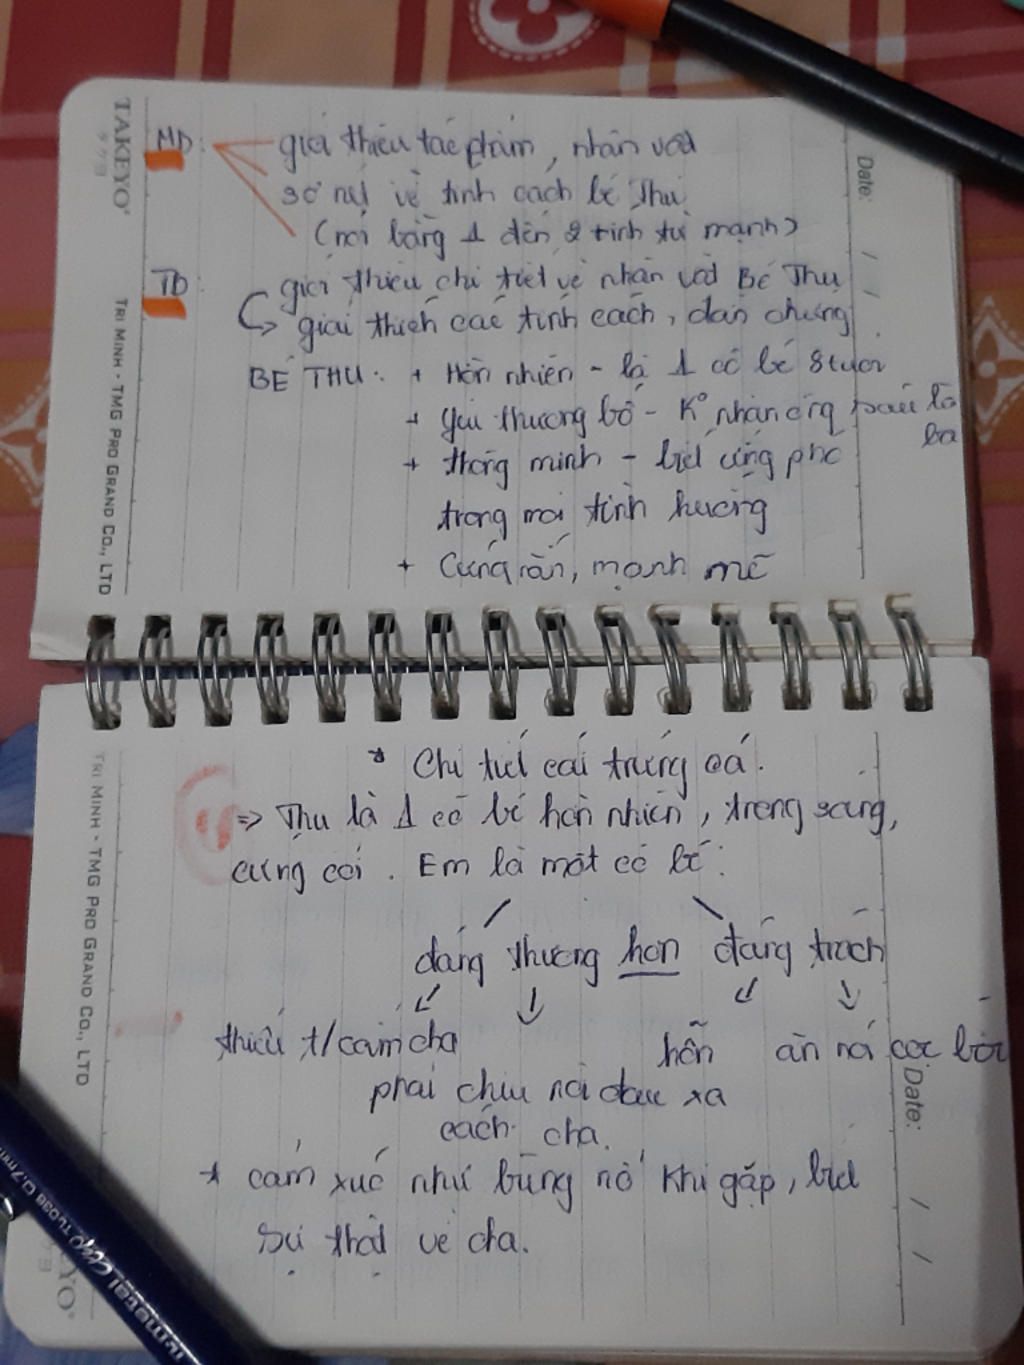 TAKEYO®
TRI MINH - TMG PRO GRAND CO., LTD
Date:
MB: giới thiệu tác phẩm, nhân vật
sơ nét về tính cách bé Thu
(nói bằng 1 đến 2 tính từ mạnh)
TB: giới thiệu chi tiết về nhân vật Bé Thu
giải thích các tính cách, dẫn chứng
BÉ THU: + Hồn nhiên - là 1 cô bé 8 tuổi
+ yêu thương bố - K° nhận ông sáu là
ba
+ thông minh - biết ứng phó
trong mọi tình huống
+ Cứng rắn, mạnh mẽ
* Chi tiết cái trứng cá.
=> Thu là 1 cô bé hồn nhiên, trong sáng,
cứng cỏi. Em là một cô bé:
đáng thương hơn đáng trách
thiếu t/cảm cha
hỗn
ăn nói cộc lốc
phải chịu nỗi đau xa
cách cha.
* cảm xúc như bùng nổ khi gặp, biết
sự thật về cha.
TRI MINH - TMG PRO GRAND CO., LTD
Date: